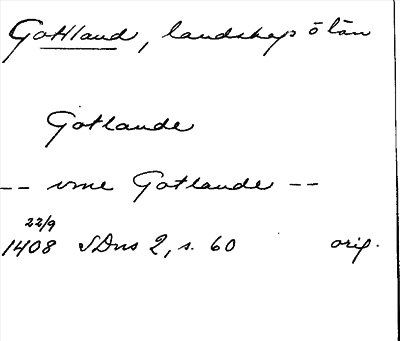 Gottland, landskap o län
Gotlande
-- vme Gotlande --
22/9
1408 SDns 2, s. 60 orig.